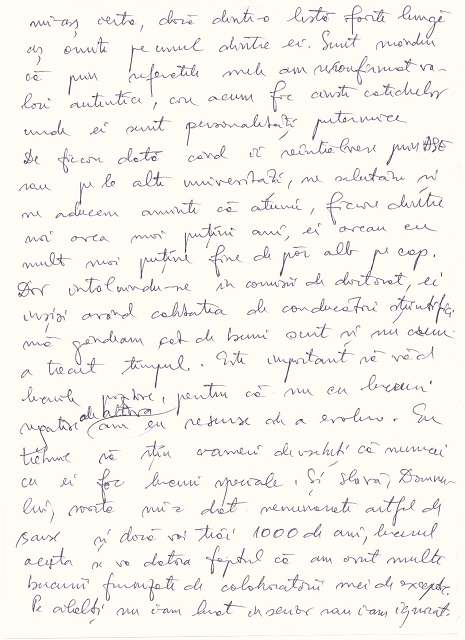 mi-aș ierta, dacă dintr-o listă foarte lungă
aș omite pe unul dintre ei. Sunt mândru
că prin referatele mele am reconfirmat va-
lori autentice, care acum fac cinste catedrelor
unde ei sunt personalități puternice
De fiecare dată când îi reîntâlnesc prin ASE
sau pe la alte universități, ne salutăm și
ne aducem aminte că atunci, fiecare dintre
noi avea mai puțini ani, ei aveau cu
mult mai puține fire de păr alb pe cap.
Dar întâlnindu-ne în comisii de doctorat, ei
înșiși având calitatea de conducători științifici
mă gândeam cât de buni sunt și nu cum
a trecut timpul. Este important să văd
lucrurile pozitive, pentru că nu cu lucruri
negative ale altora am eu resurse de a evolua. Eu
trebuie să știu oameni deosebiți că numai
cu ei fac lucruri speciale. Și slavă, Domnu-
lui, soarta mi-a dat nenumărate astfel de
șanse și dacă voi trăi 1000 de ani, lucrul
acesta se va datora faptului că am avut multe
bucurii furnizate de colaboratorii mei de excepție.
Pe ceilalți nu i-am luat în seamă sau i-am ignorat.